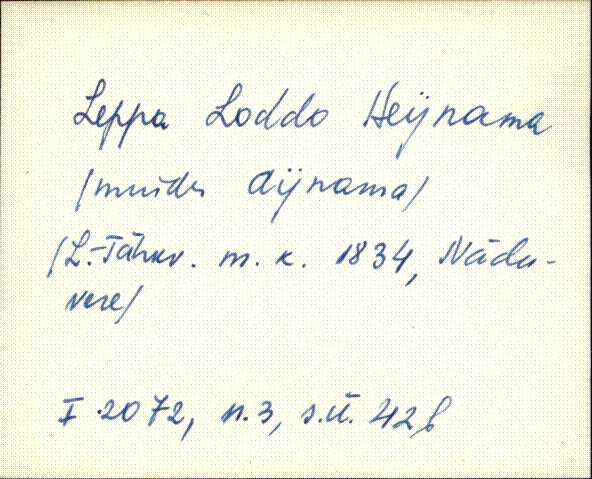 Leppa Loddo Heÿnama
/muides aÿnama/
/L.-Tähkv. m. k. 1834, Nädu-
vere/
I 2072, n. 3, s.ü. 42 b